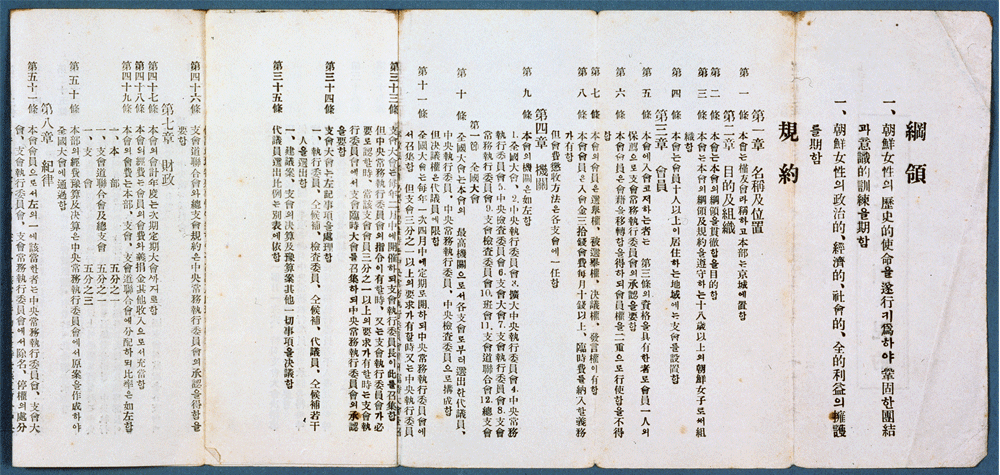 綱領
一、朝鮮女性의歷史的使命을遂行키爲하야鞏固한團結
과意識的訓練을期함
一、朝鮮女性의政治的、經濟的、社會的、全的利益의擁護
를期함
規約
第一章 名稱及位置
第一條 本會는槿友會라稱하고本部는京城에置함
第二章 目的及組織
第二條 本會는本會의綱領을貫徹함을目的함
第三條 本會는本會의綱領及規約을遵守하는十八歲以上의朝鮮女子로써組
織함
第四條 本會는會員十人以上이居住하는地域에는支會를設置함
第三章 會員
第五條 本會에入會코저하는者는 第三條의資格을具有한者로會員二人의
保薦으로支會常務執行委員會의承認을要함
第六條 本會會員은會籍을移轉함을得하되會員權을二重으로行使함을不得
함
第七條 本會의會員은選擧權、被選擧權、決議權、發言權이有함
第八條 本會會員은入會金三拾錢會費每月十錢以上、臨時費를納入할義務
가有함
但會費懲收方法은各支會에一任함
第四章 機關
第九條 本會의機關은如左함
1.全國大會、2.中央執行委員會3.擴大中央執行委員會4.中央常務
執行委員會5.中央檢査委員會6.支會大會7.支會執行委員會8.支會
常務執行委員會9.支會檢査委員會10.班會11.支會道聯合會12.總支會
第一節 全國大會
第十條 全國大會는本會의 最高機關으로서各支會로부터選出한代議員、
中央執行委員、中央常務執行委員、中央檢査委員으로構成함
但決議權은代議員에限함
第十一條 全國大會는每年一次四月中에定期로開하되中央執行委員會에
서召集함 但支會三分之一以上의要求가有할時又는中央執行委員
第三十三條
但中央常務執行委員會의指令이有할時、又는支會執行委員會가必
要로認할時、當該支會會員三分之一以上의要求가有할時는支會執
行委員會에서支會臨時大會를召集하되中央常務執行委員會의承認
을要함
第三十四條 支會大會는左記事項을處理함
一、執行委員、仝候補、檢査委員、仝候補、代議員、仝候補若干
人을選出함
一、建議案、支會의決算及豫算案其他一切事項을決議함
第三十五條 代議員選出比例는別表에依함
第四十六條 支會道聯合會와總支會規約은中央常務執行委員會의承認을得함을
要함
第七章 財政
第四十七條 本會의會計年度는次期定期大會까지로함
第四十八條 本會經費는會員의會費와義捐金及其他收入으로써充當함
第四十九條 本會의會費는本部、支會、支會道聯合會에分配하되比率은如左함
一、本部 五分之一
一、支會道聯合會及總支會 五分之一
一、支會 五分之三
第五十條 本部의經費豫算及決算은中央常務執行委員會에서原案을作成하야
全國大會에通過함
第八章 紀律
第五十一條 本會會員으로서左의一에該當한者는中央常務執行委員會、支會大
會、支會執行委員會、支會常務執行委員會에서除名、停權의處分